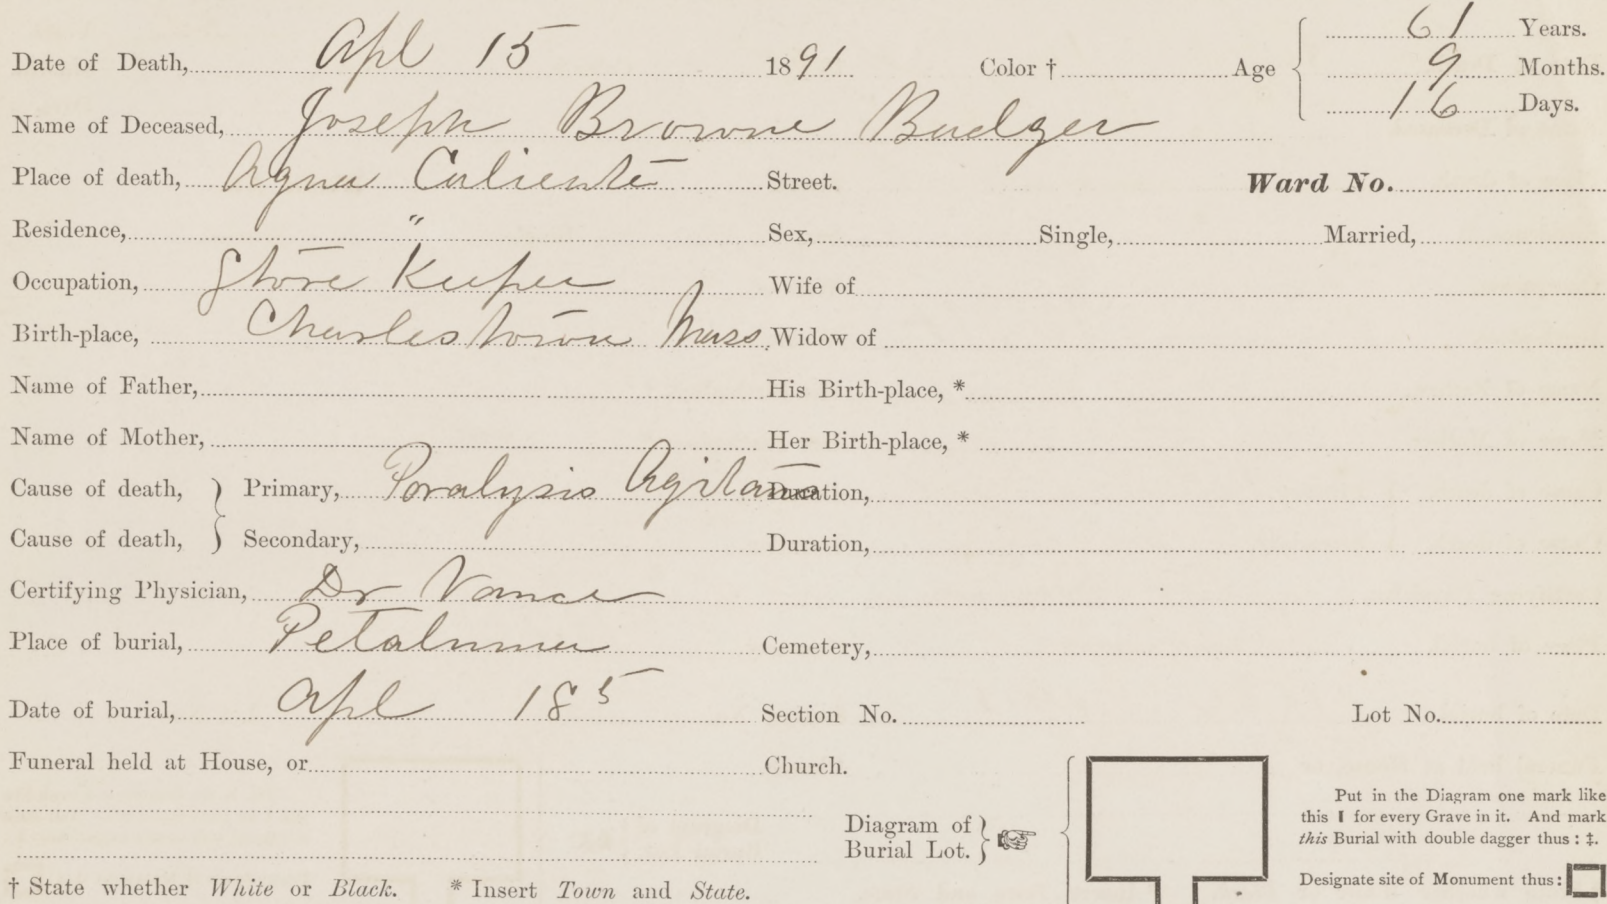 61 Years.
Date of Death, Apl 15 1891 Color † Age 9 Months.
16 Days.
Name of Deceased, Joseph Browne Badger
Place of death, Agua Caliente Street. Ward No.
Residence, " Sex, Single, Married,
Occupation, Store Keeper Wife of
Birth-place, Charlestown Mass. Widow of
Name of Father, His Birth-place, *
Name of Mother, Her Birth-place, *
Cause of death, } Primary, Paralysis Agitans Duration,
Cause of death, } Secondary, Duration,
Certifying Physician, Dr Vance
Place of burial, Petaluma Cemetery,
Date of burial, Apl 18 Section No. Lot No.
Funeral held at House, or Church.
Diagram of
Burial Lot.
Put in the Diagram one mark like
this ▌ for every Grave in it. And mark
this Burial with double dagger thus : ‡.
Designate site of Monument thus :
† State whether White or Black. * Insert Town and State.